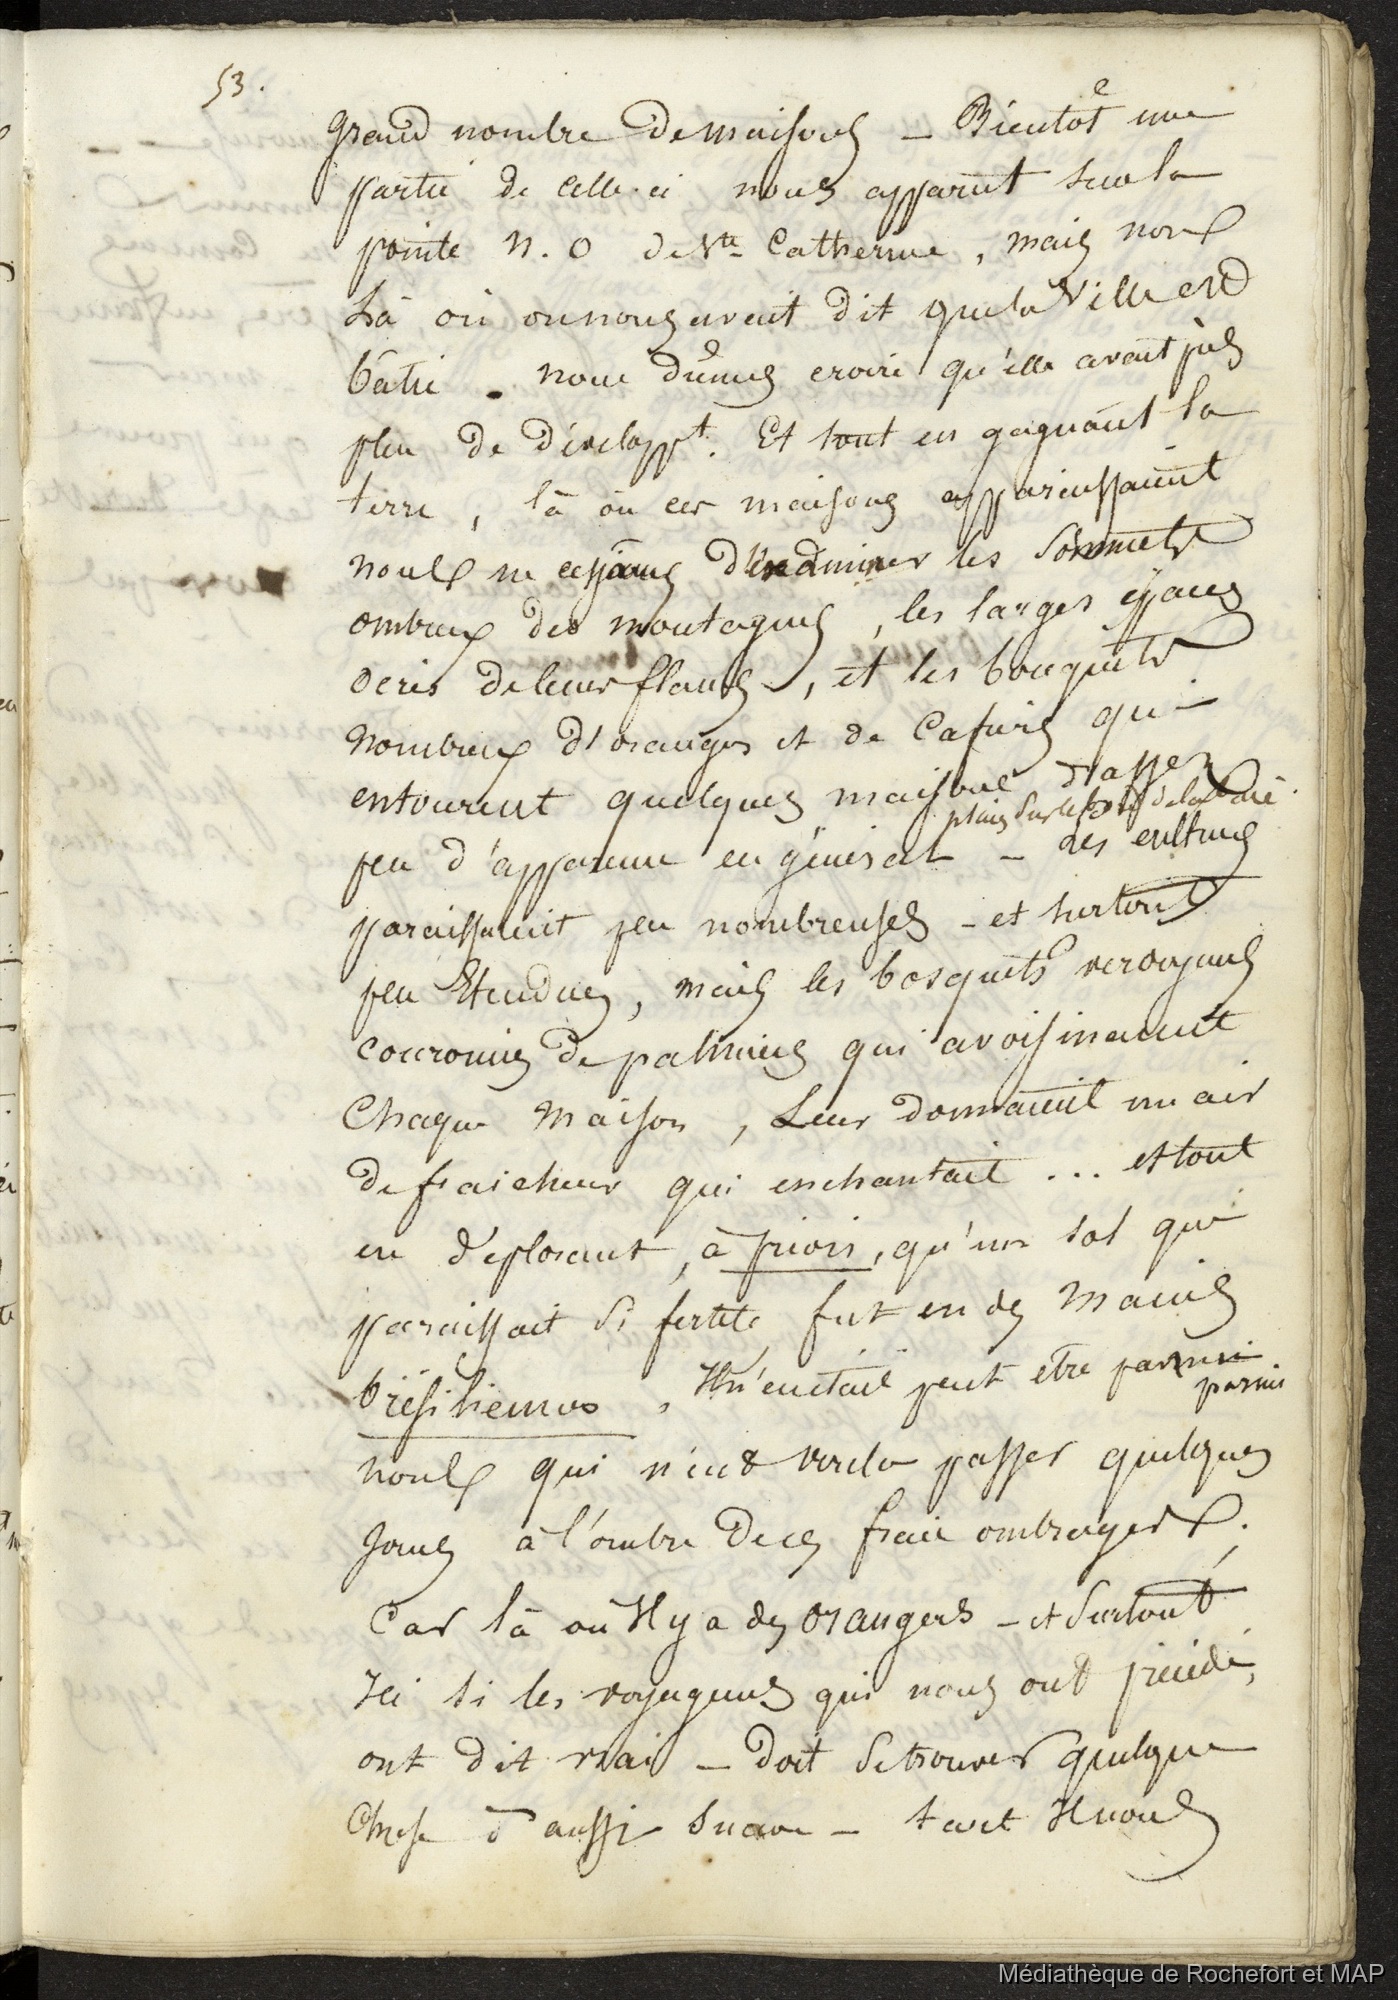 53.
grand nombre de maisons – Bientôt une
partie de celle-ci nous apparut sur la
pointe N. O de Ste Catherine, mais non
Là où on nous avait dit que la Ville est
bâtie. Nous dûmes croire qu'elle avait pris
plus de développt. Et tout en gagnant la
terre, là où ces maisons apparaissaient
nous ne cessâmes d'examiner les sommets
ombreux des montagnes, les larges espaces
de leurs flancs, et les bouquets
nombreux d'oranges et de Cafiers qui
entourent quelques maisons d'assez
plais sur le bord de la baie.
peu d'apparence en général – des cultures
paraissaient peu nombreuses – et surtout
peu Etendues, mais les bosquets verdoyans
couronnés de palmiers qui avoisinaient
Chaque Maison, Leur donnaient un air
de fraicheur qui enchantait ... et tout
en déplorant, à priori, qu'un sol qui
paraissait si fertile fut en des Mains
brésiliennes, Il n'en était peut etre parmi
parmi
nous qui n'eut voulu passer quelques
Jours à l'ombre de ces frais ombrages.
Car là où Il y a des orangers – et surtout
Ici si les voyageurs qui nous ont précédé,
ont dit vrai – doit se trouver quelque
Chose d'aussi suave – tout Il nous
Médiathèque de Rochefort et MAP